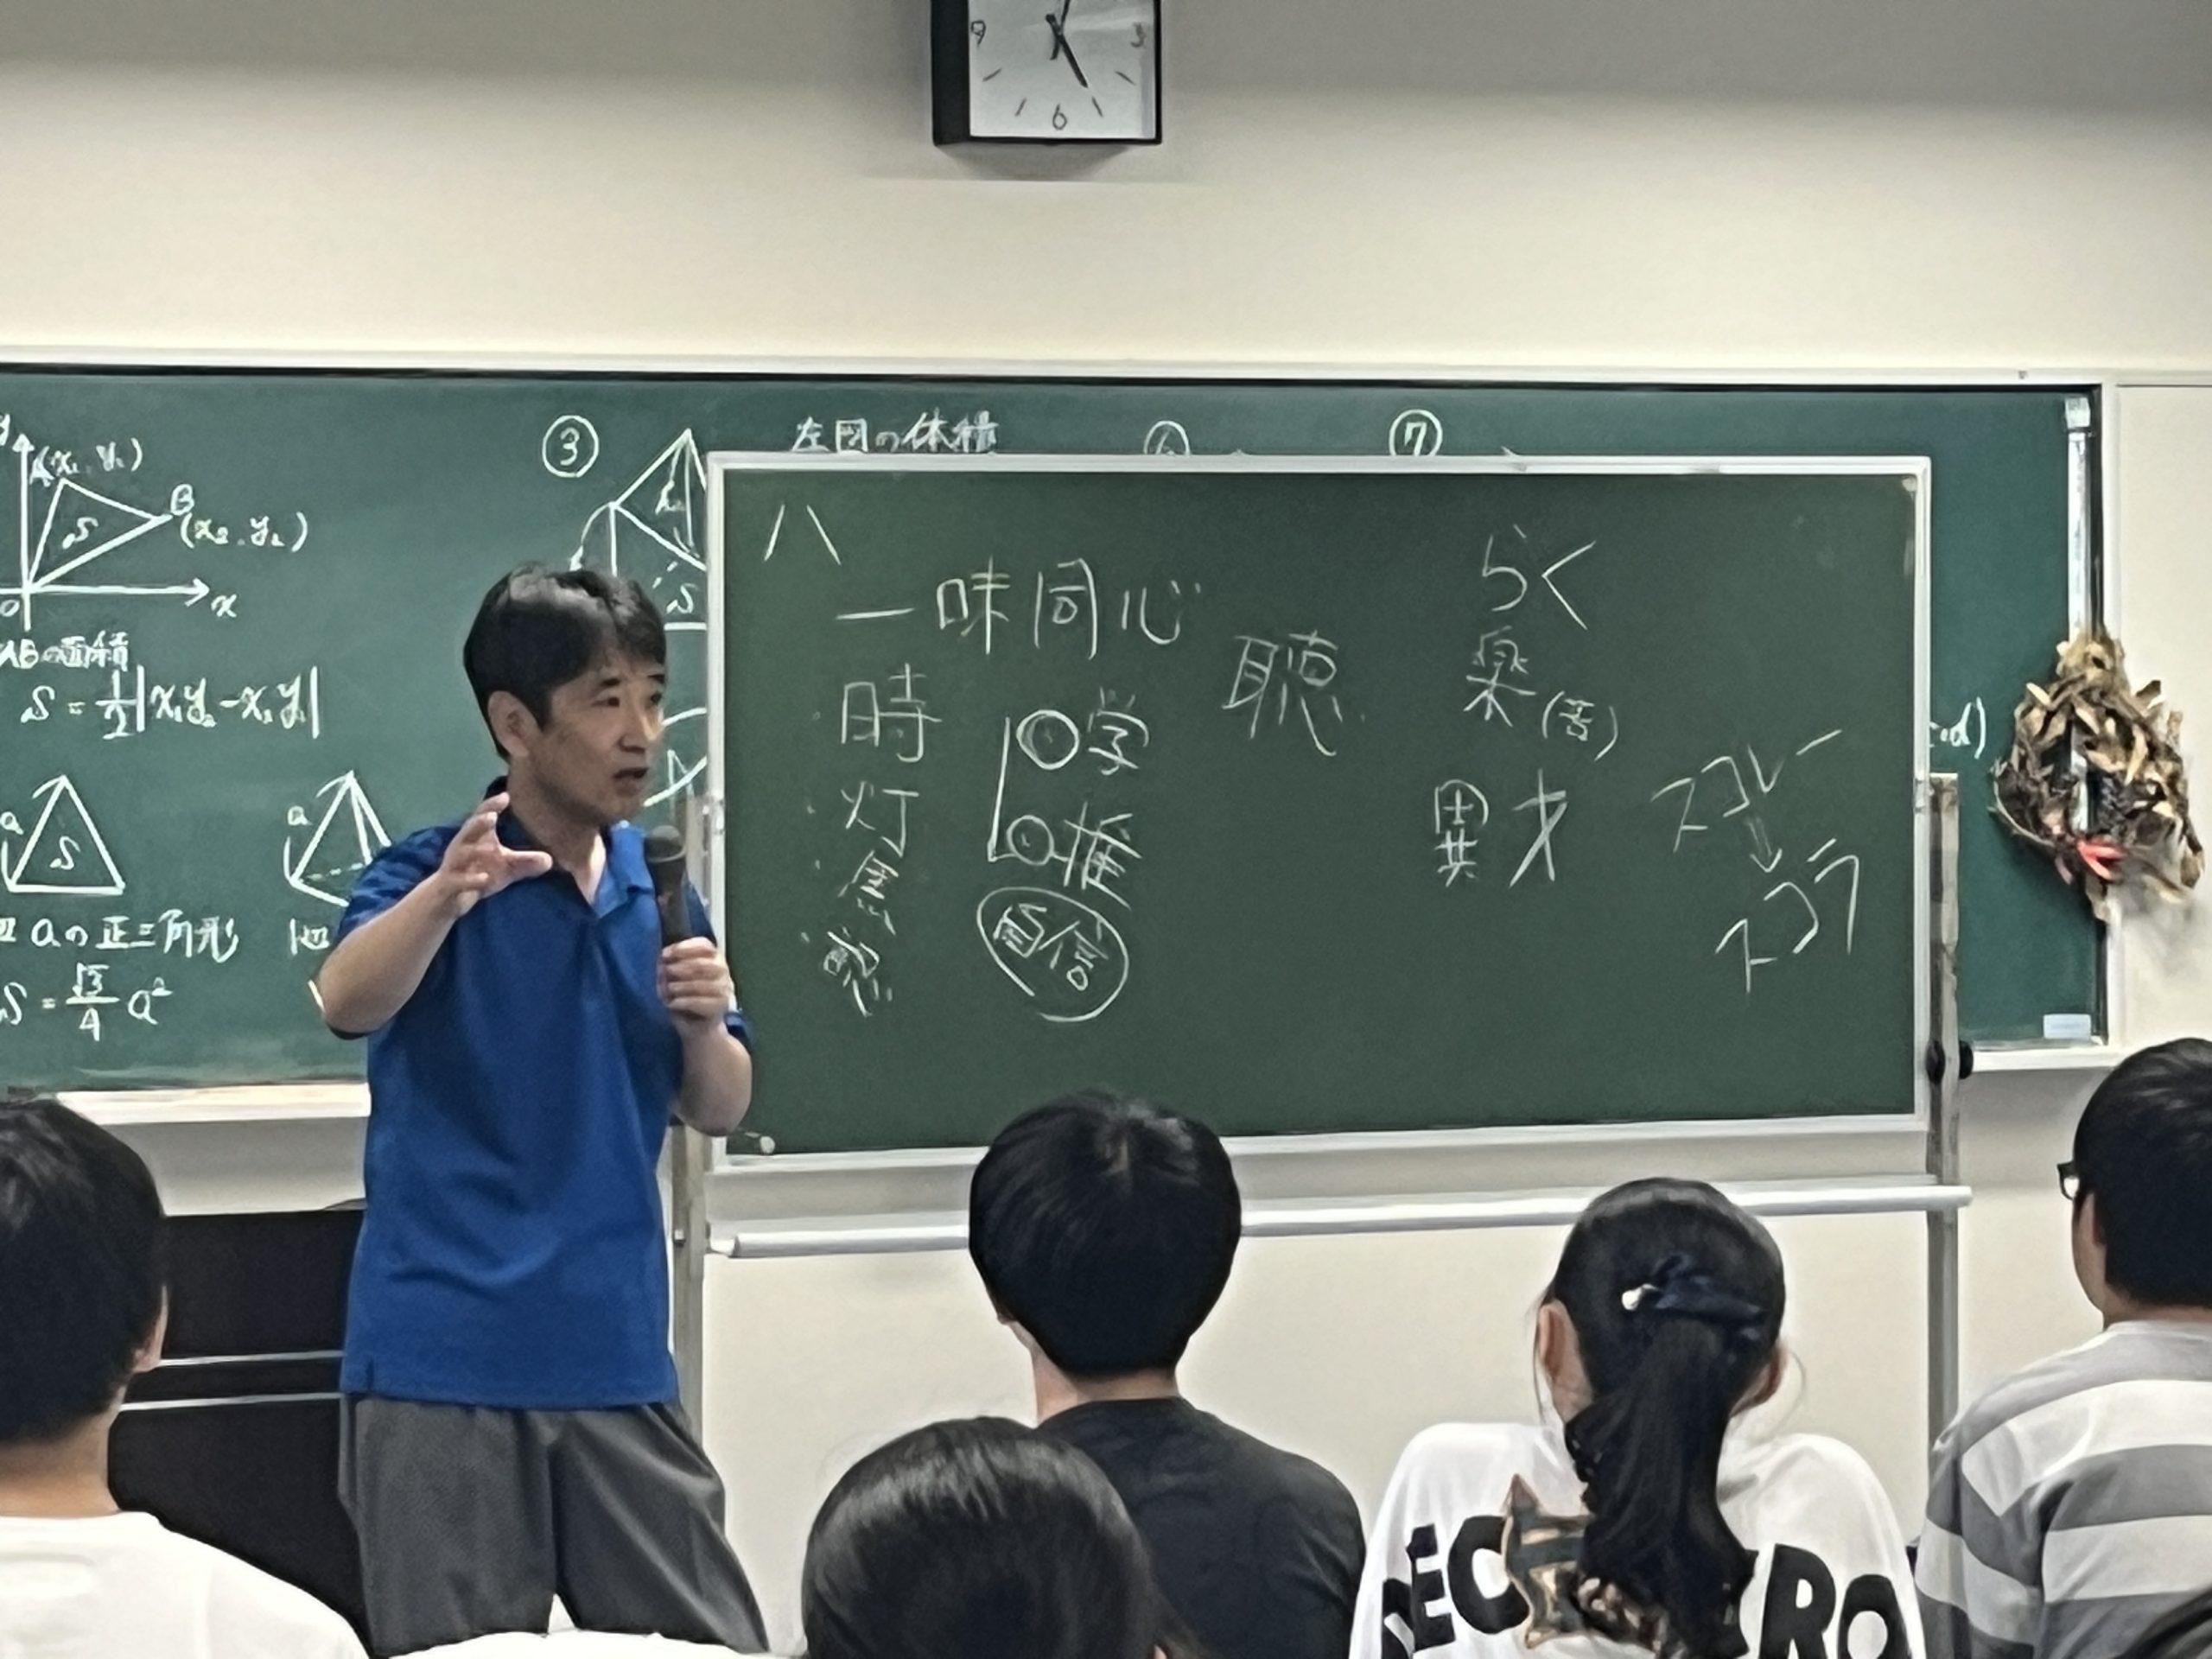 9
3
6
y
A(x₁, y₁)
B
(x₂, y₂)
S
O
x
ABの面積
S = 1/2|x₁y₂-x₂y₁|
a
S
辺aの正三角形
S = √3/4 a²
a
1辺
③
h
S
左図の体積
⑥
⑦
八
一味同心
時
灯
○学
○推
自信
聴
らく
楽(苦)
異才
スコレー
↓
スコラ
RO